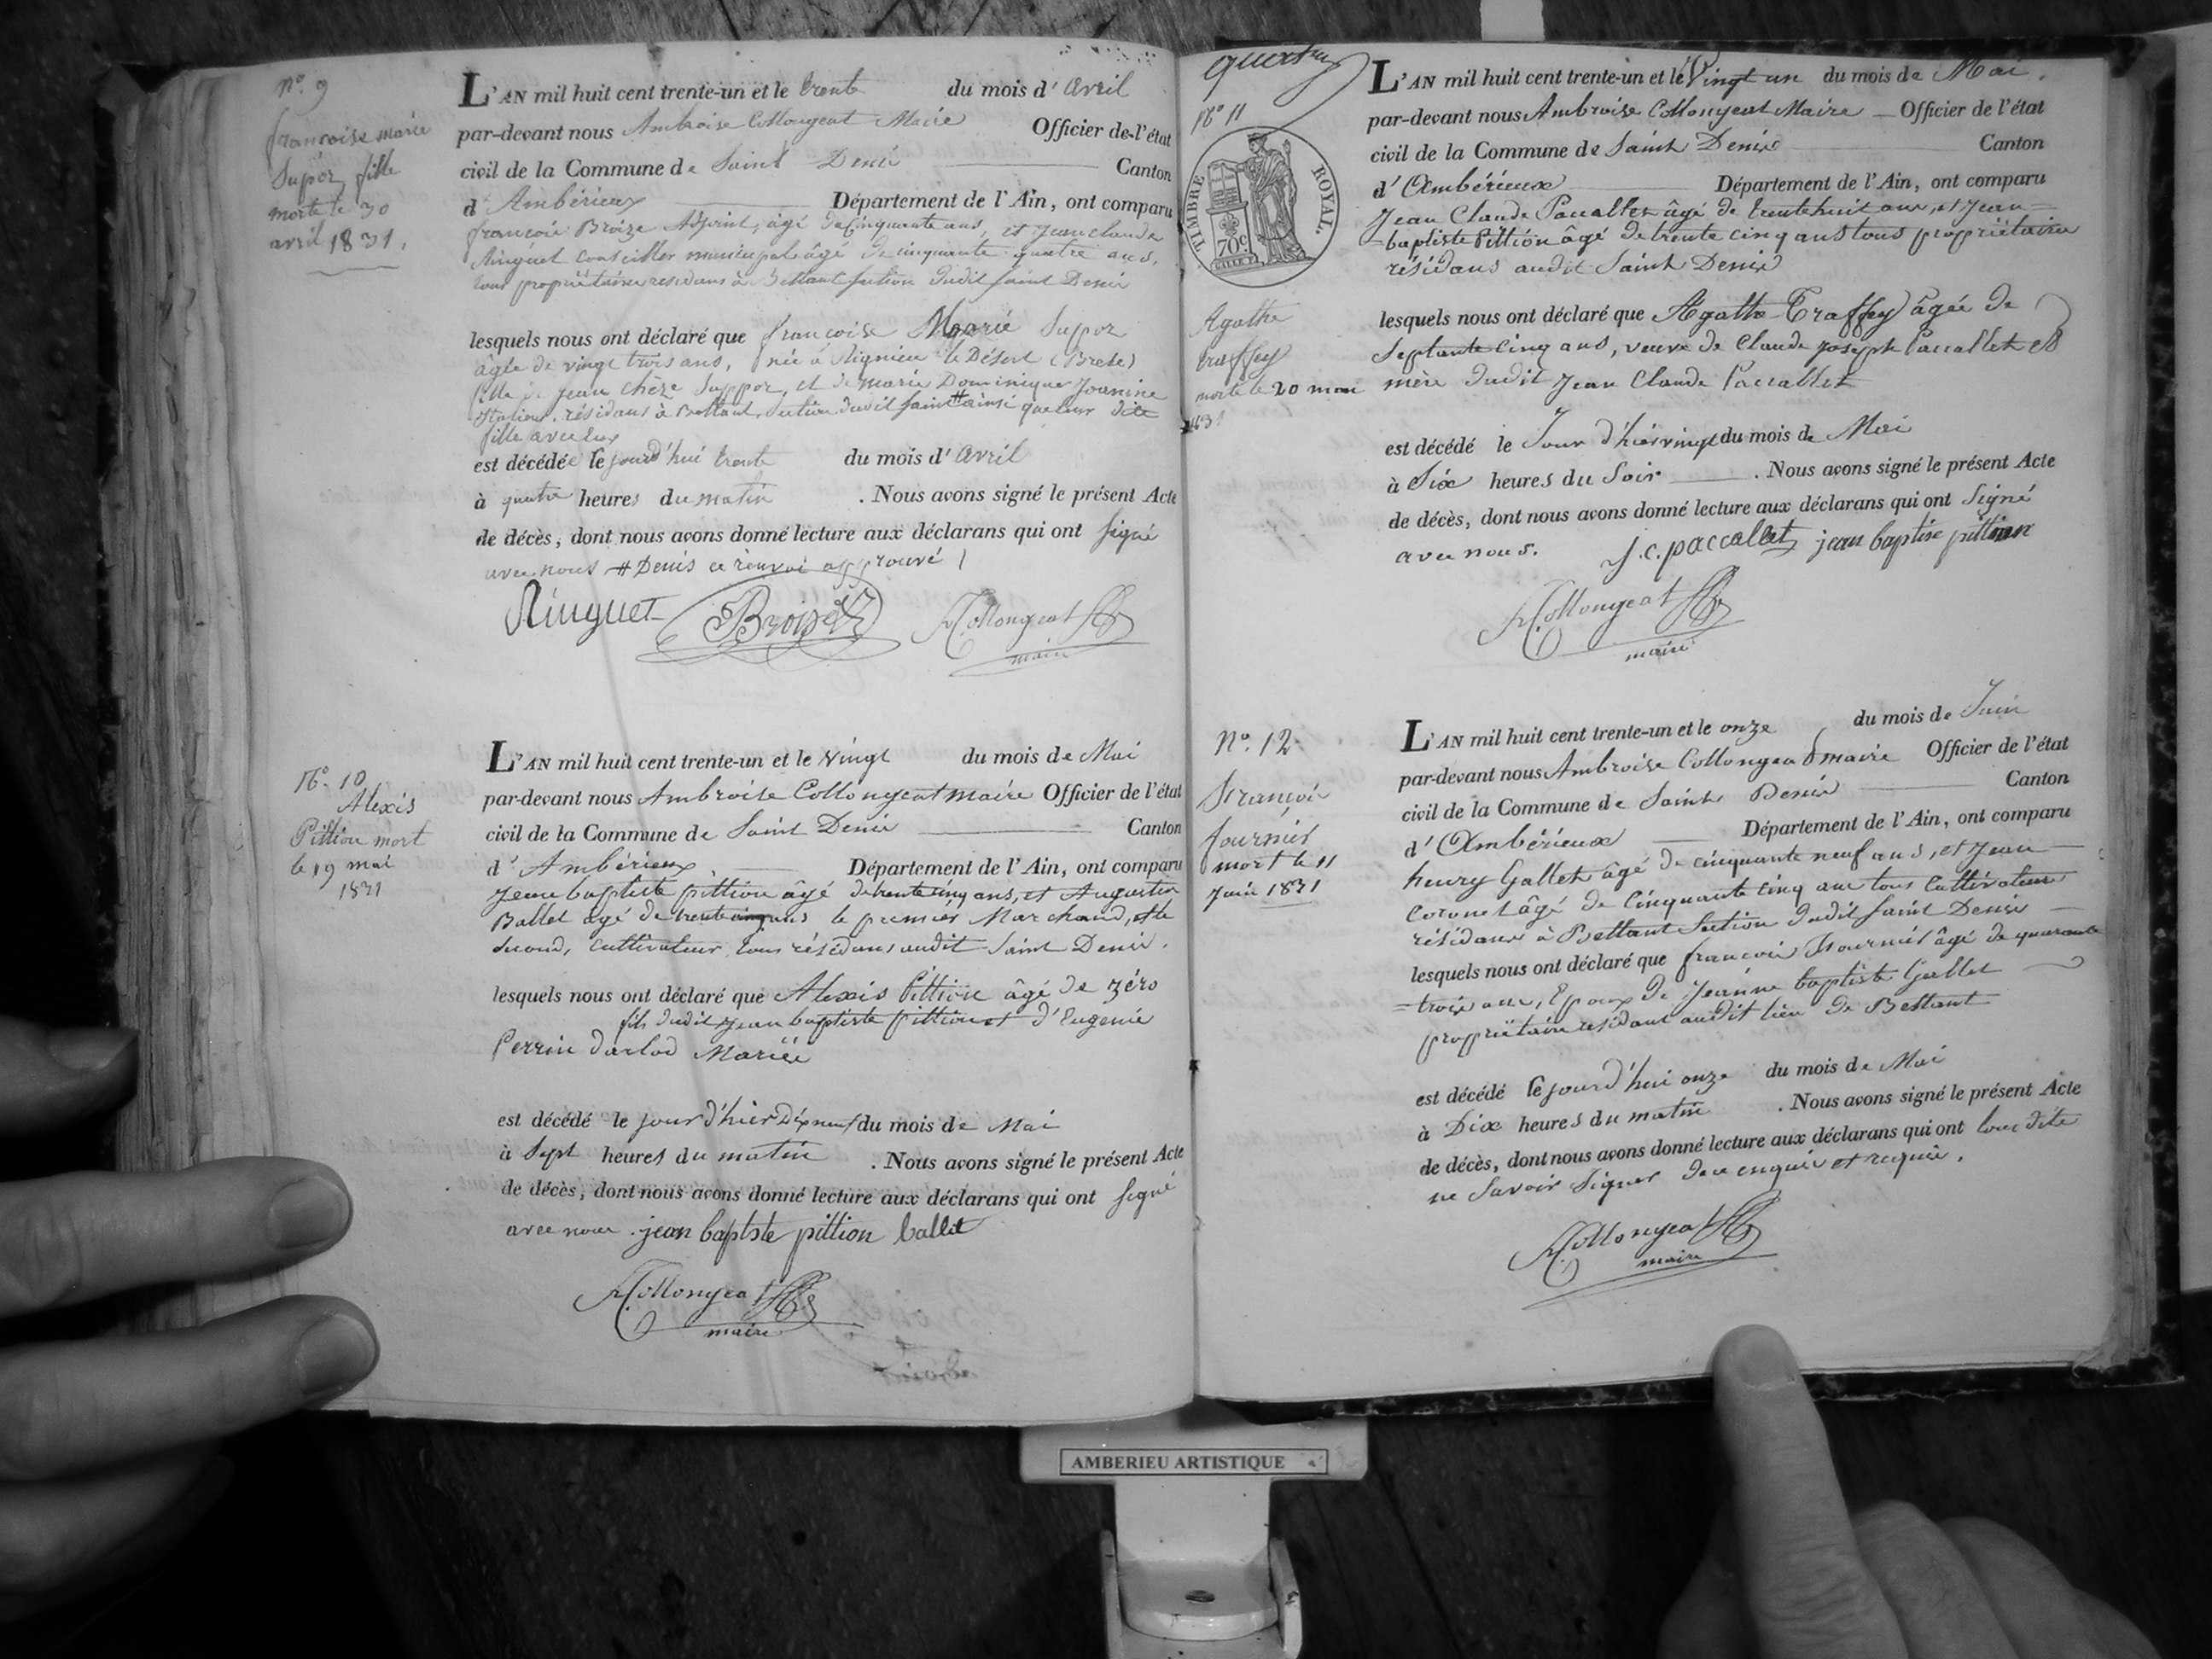 N.° 9
françoise marie
Supor, fille
morte le 30
avril 1831.
L'AN mil huit cent trente-un et le trente du mois d' avril
par-devant nous Ambroise Collongeat Maire Officier de l'état
civil de la Commune de Saint Denis Canton
d' Ambérieux Département de l'Ain, ont comparu
françois Broize Adjoint, âgé de Cinquante ans, et Jean claude
Ringuet conseiller municipale âgé de cinquante quatre ans,
tous propriétaires residans à Bettant Section dudit saint Denis
lesquels nous ont déclaré que françoise Marie Supor
âgée de vingt trois ans, née à Rignieu le Désert
fille de jean Suppor, et de marie Dominique Joanine
résidans à Bettant, Section dudit saint # ainsi que leur dite
fille avec eux
est décédée le jourd'hui trente du mois d' avril
à quatre heures du matin . Nous avons signé le présent Acte
de décès, dont nous avons donné lecture aux déclarans qui ont signé
avec nous # Denis ce renvoi approuvé
Ringuet Broize A. Collongeat
maire
N.° 10
Alexis
Pittion mort
le 19 mai
1831
L'AN mil huit cent trente-un et le vingt du mois de Mai
par-devant nous Ambroise Collongeat maire Officier de l'état
civil de la Commune de Saint Denis Canton
d' Ambérieux Département de l'Ain, ont comparu
Jean baptiste pittion âgé de trente cinq ans, et Augustin
Ballet âgé de trente cinq ans le premier Marchand, et le
second, cultivateur tous résidans audit Saint Denis.
lesquels nous ont déclaré que Alexis Pittion âgé de zéro
fils dudit Jean baptiste pittion et d'Eugenie
Perrin darlod Mariés
est décédé le jour d'hier Dix neuf du mois de Mai
à Sept heures du matin . Nous avons signé le présent Acte
de décès, dont nous avons donné lecture aux déclarans qui ont signé
avec nous. jean baptiste pittion ballet
A. Collongeat
maire
N° 11
TIMBRE ROYAL.
70c
Agathe
traffey
morte le 20 mai
1831
L'AN mil huit cent trente-un et le Vingt un du mois de Mai.
par-devant nous Ambroise Collongeat Maire Officier de l'état
civil de la Commune de Saint Denis Canton
d' Ambérieux Département de l'Ain, ont comparu
Jean Claude Paccallet âgé de trente huit ans, et Jean
-baptiste Pittion âgé de trente cinq ans tous propriétaires
résidans audit Saint Denis
lesquels nous ont déclaré que Agathe Traffey âgée de
Septante cinq ans, veuve de Claude joseph Paccallet et
mère dudit Jean Claude Paccallet
est décédé le Jour d'hier vingt du mois de Mai
à Six heures du Soir . Nous avons signé le présent Acte
de décès, dont nous avons donné lecture aux déclarans qui ont Signé
avec nous. j.c. paccallet jean baptise pittion
A. Collongeat
maire
N°. 12
François
fournier
mort le 11
Juin 1831
L'AN mil huit cent trente-un et le onze du mois de Juin
par-devant nous Ambroise Collongeat maire Officier de l'état
civil de la Commune de Saint Denis Canton
d' Ambérieux Département de l'Ain, ont comparu
henry Gallet âgé de cinquante neuf ans, et Jean
Coronel âgé de Cinquante Cinq ans tous Cultivateurs
résidans à Bettant Section dudit Saint Denis
lesquels nous ont déclaré que françois Fournier âgé de quarante
=trois ans, Epoux de Jeanne baptiste Gallet
propriétaire residant audit lieu de Bettant
est décédé le jourd'hui onze du mois de Mai
à Dix heures du matin . Nous avons signé le présent Acte
de décès, dont nous avons donné lecture aux déclarans qui ont tous dits
ne Savoir Signer de ce enquis et requis.
A. Collongeat
maire
AMBERIEU ARTISTIQUE